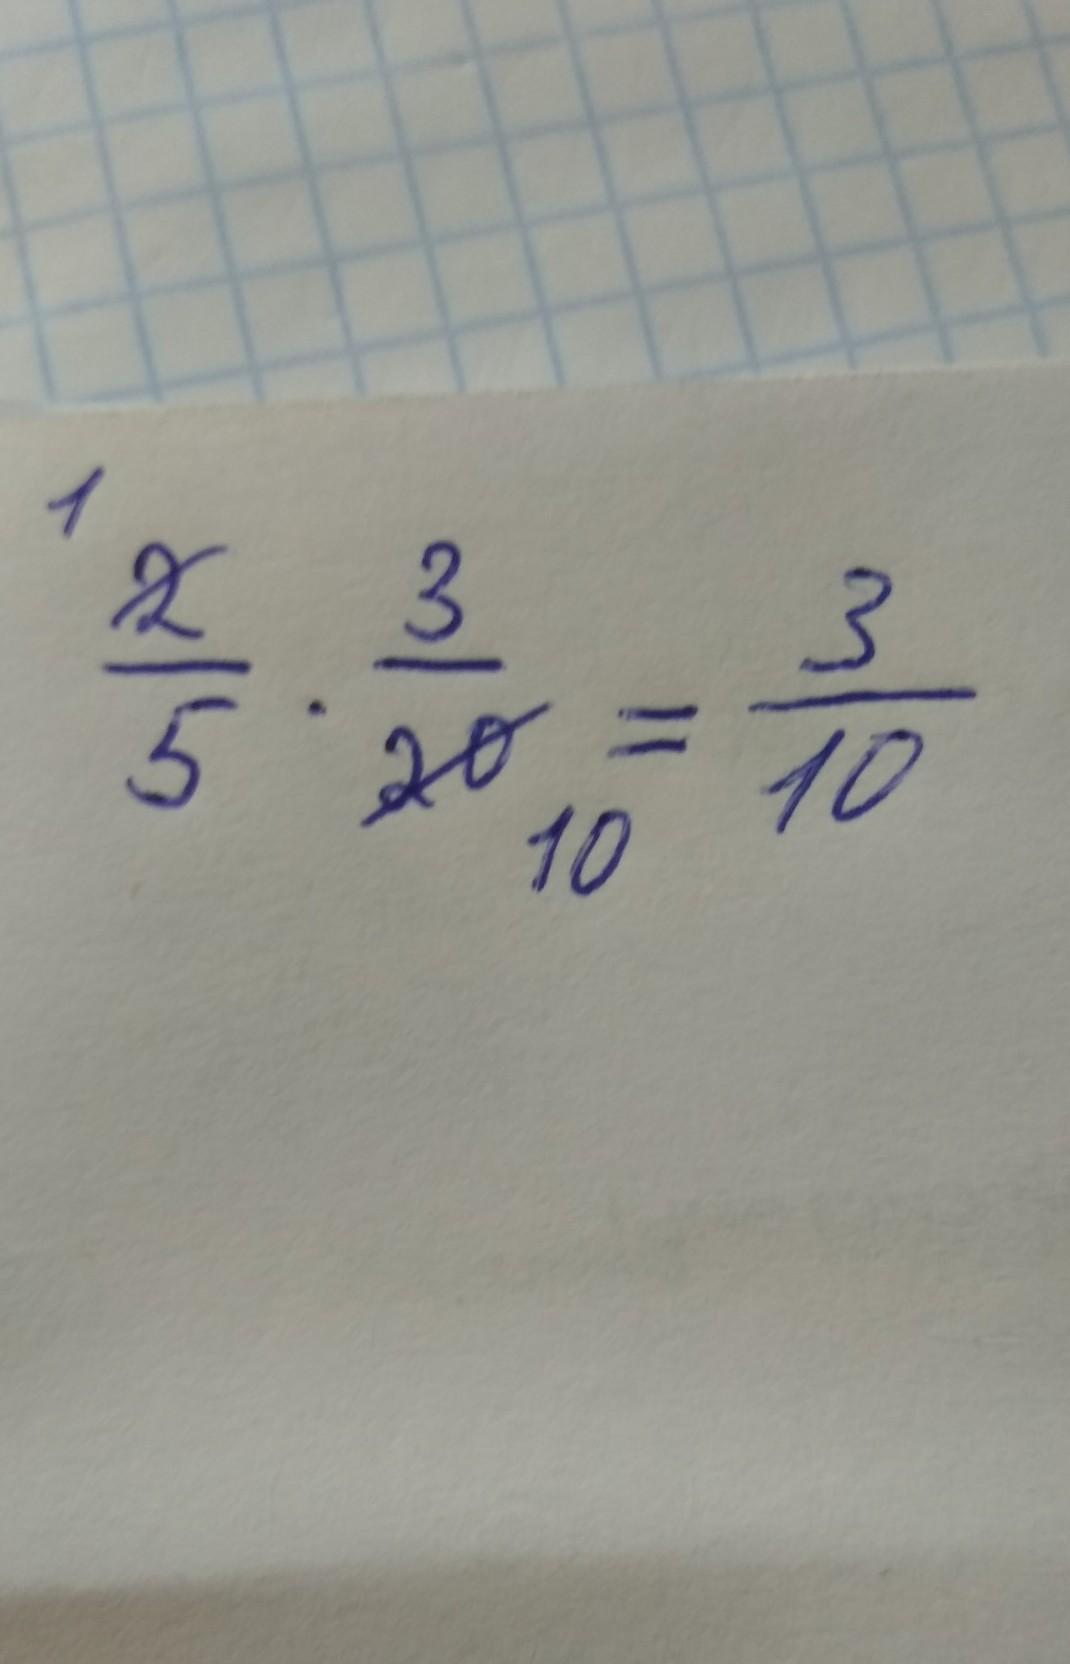 1
2/5 · 3/20 = 3/10
10